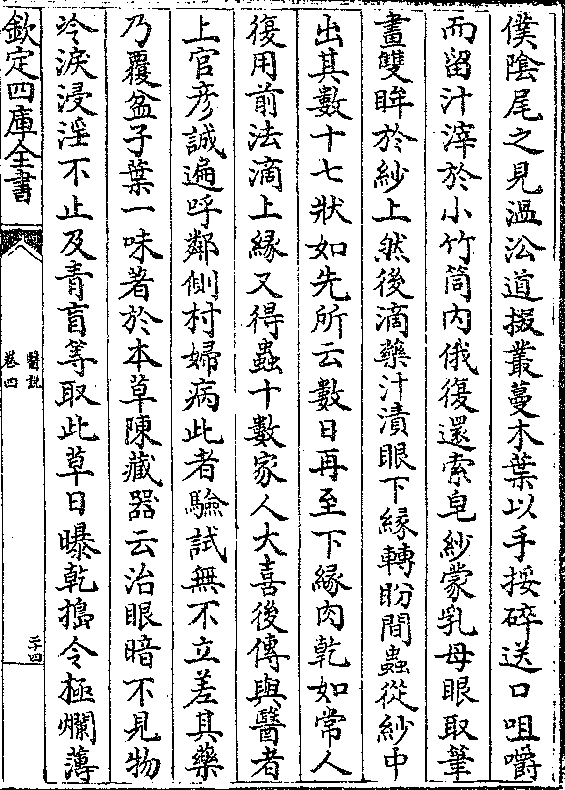 僕陰尾之見溫沿道掇叢蔓木葉以手挼碎送口咀嚼
而留汁滓於小竹筒內俄復還索皂紗蒙乳母眼取筆
畫雙眸於紗上然後滴藥汁漬眼下緣轉盼間蟲從紗中
出其數十七狀如先所云數日再至下緣肉乾如常人
復用前法滴上緣又得蟲十數家人大喜後傳與醫者
上官彦誠遍呼鄰側村婦病此者驗試無不立差其藥
乃覆盆子葉一味著於本草陳藏器云治眼暗不見物
冷淚浸淫不止及青盲等取此草日曝乾搗令極爛薄
欽定四庫全書
醫說
卷四
二十四